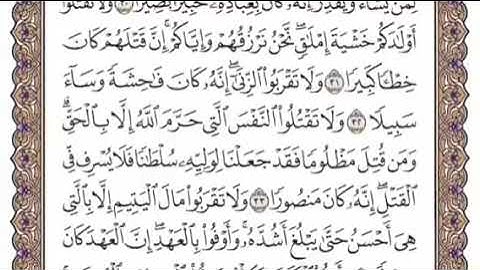 لِمَن يَشَآءُ وَيَقْدِرُ إِنَّهُۥ كَانَ بِعِبَادِهِۦ خَبِيرًۢا بَصِيرًا ٣٠ وَلَا تَقْتُلُوٓا۟
أَوْلَٰدَكُمْ خَشْيَةَ إِمْلَٰقٍ نَّحْنُ نَرْزُقُهُمْ وَإِيَّاكُمْ إِنَّ قَتْلَهُمْ كَانَ
خِطْـًٔا كَبِيرًا ٣١ وَلَا تَقْرَبُوا۟ ٱلزِّنَىٰٓ إِنَّهُۥ كَانَ فَٰحِشَةً وَسَآءَ
سَبِيلًا ٣٢ وَلَا تَقْتُلُوا۟ ٱلنَّفْسَ ٱلَّتِى حَرَّمَ ٱللَّهُ إِلَّا بِٱلْحَقِّ
وَمَن قُتِلَ مَظْلُومًا فَقَدْ جَعَلْنَا لِوَلِيِّهِۦ سُلْطَٰنًا فَلَا يُسْرِف فِّى
ٱلْقَتْلِ إِنَّهُۥ كَانَ مَنصُورًا ٣٣ وَلَا تَقْرَبُوا۟ مَالَ ٱلْيَتِيمِ إِلَّا بِٱلَّتِى
هِىَ أَحْسَنُ حَتَّىٰ يَبْلُغَ أَشُدَّهُۥ وَأَوْفُوا۟ بِٱلْعَهْدِ إِنَّ ٱلْعَهْدَ كَانَ